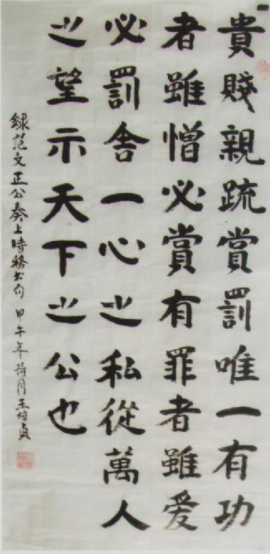 貴賤親疏賞罰唯一有功
者雖憎必賞有罪者雖爱
必罰舍一心之私從萬人
之望示天下之公也
録范文正公奏上時務书句 甲午年荷月王貞